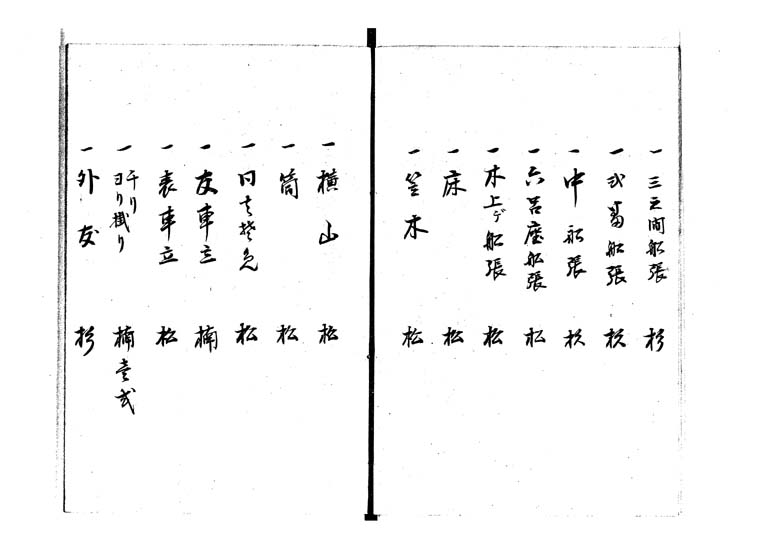 一 三之間船張 杉
一 弐番船張 杉
一 中船張 杉
一 六呂座船張 松
一 木上ゲ船張 松
一 床 松
一 笠木 松
一 横山 松
一 筒 松
一 同 松
一 友車立 楠
一 表車立 松
一 干リヨリ掛り 楠壱弐
一 外友 杉